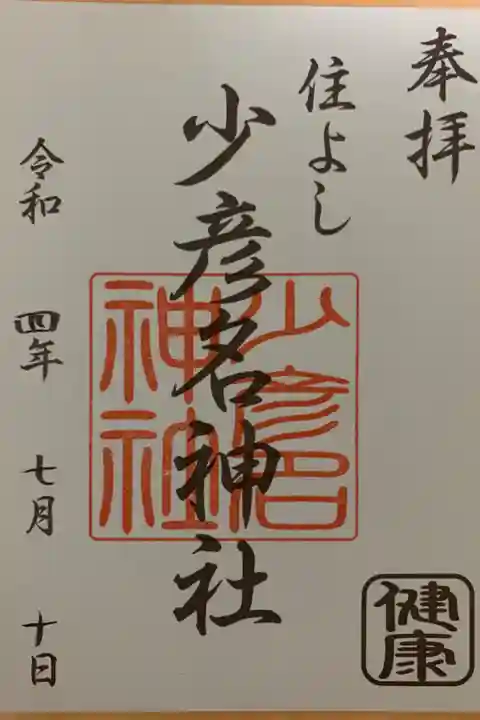 奉拝
住よし
少彦名神社
少彦名
神社
令和 四年 七月 十日
健康